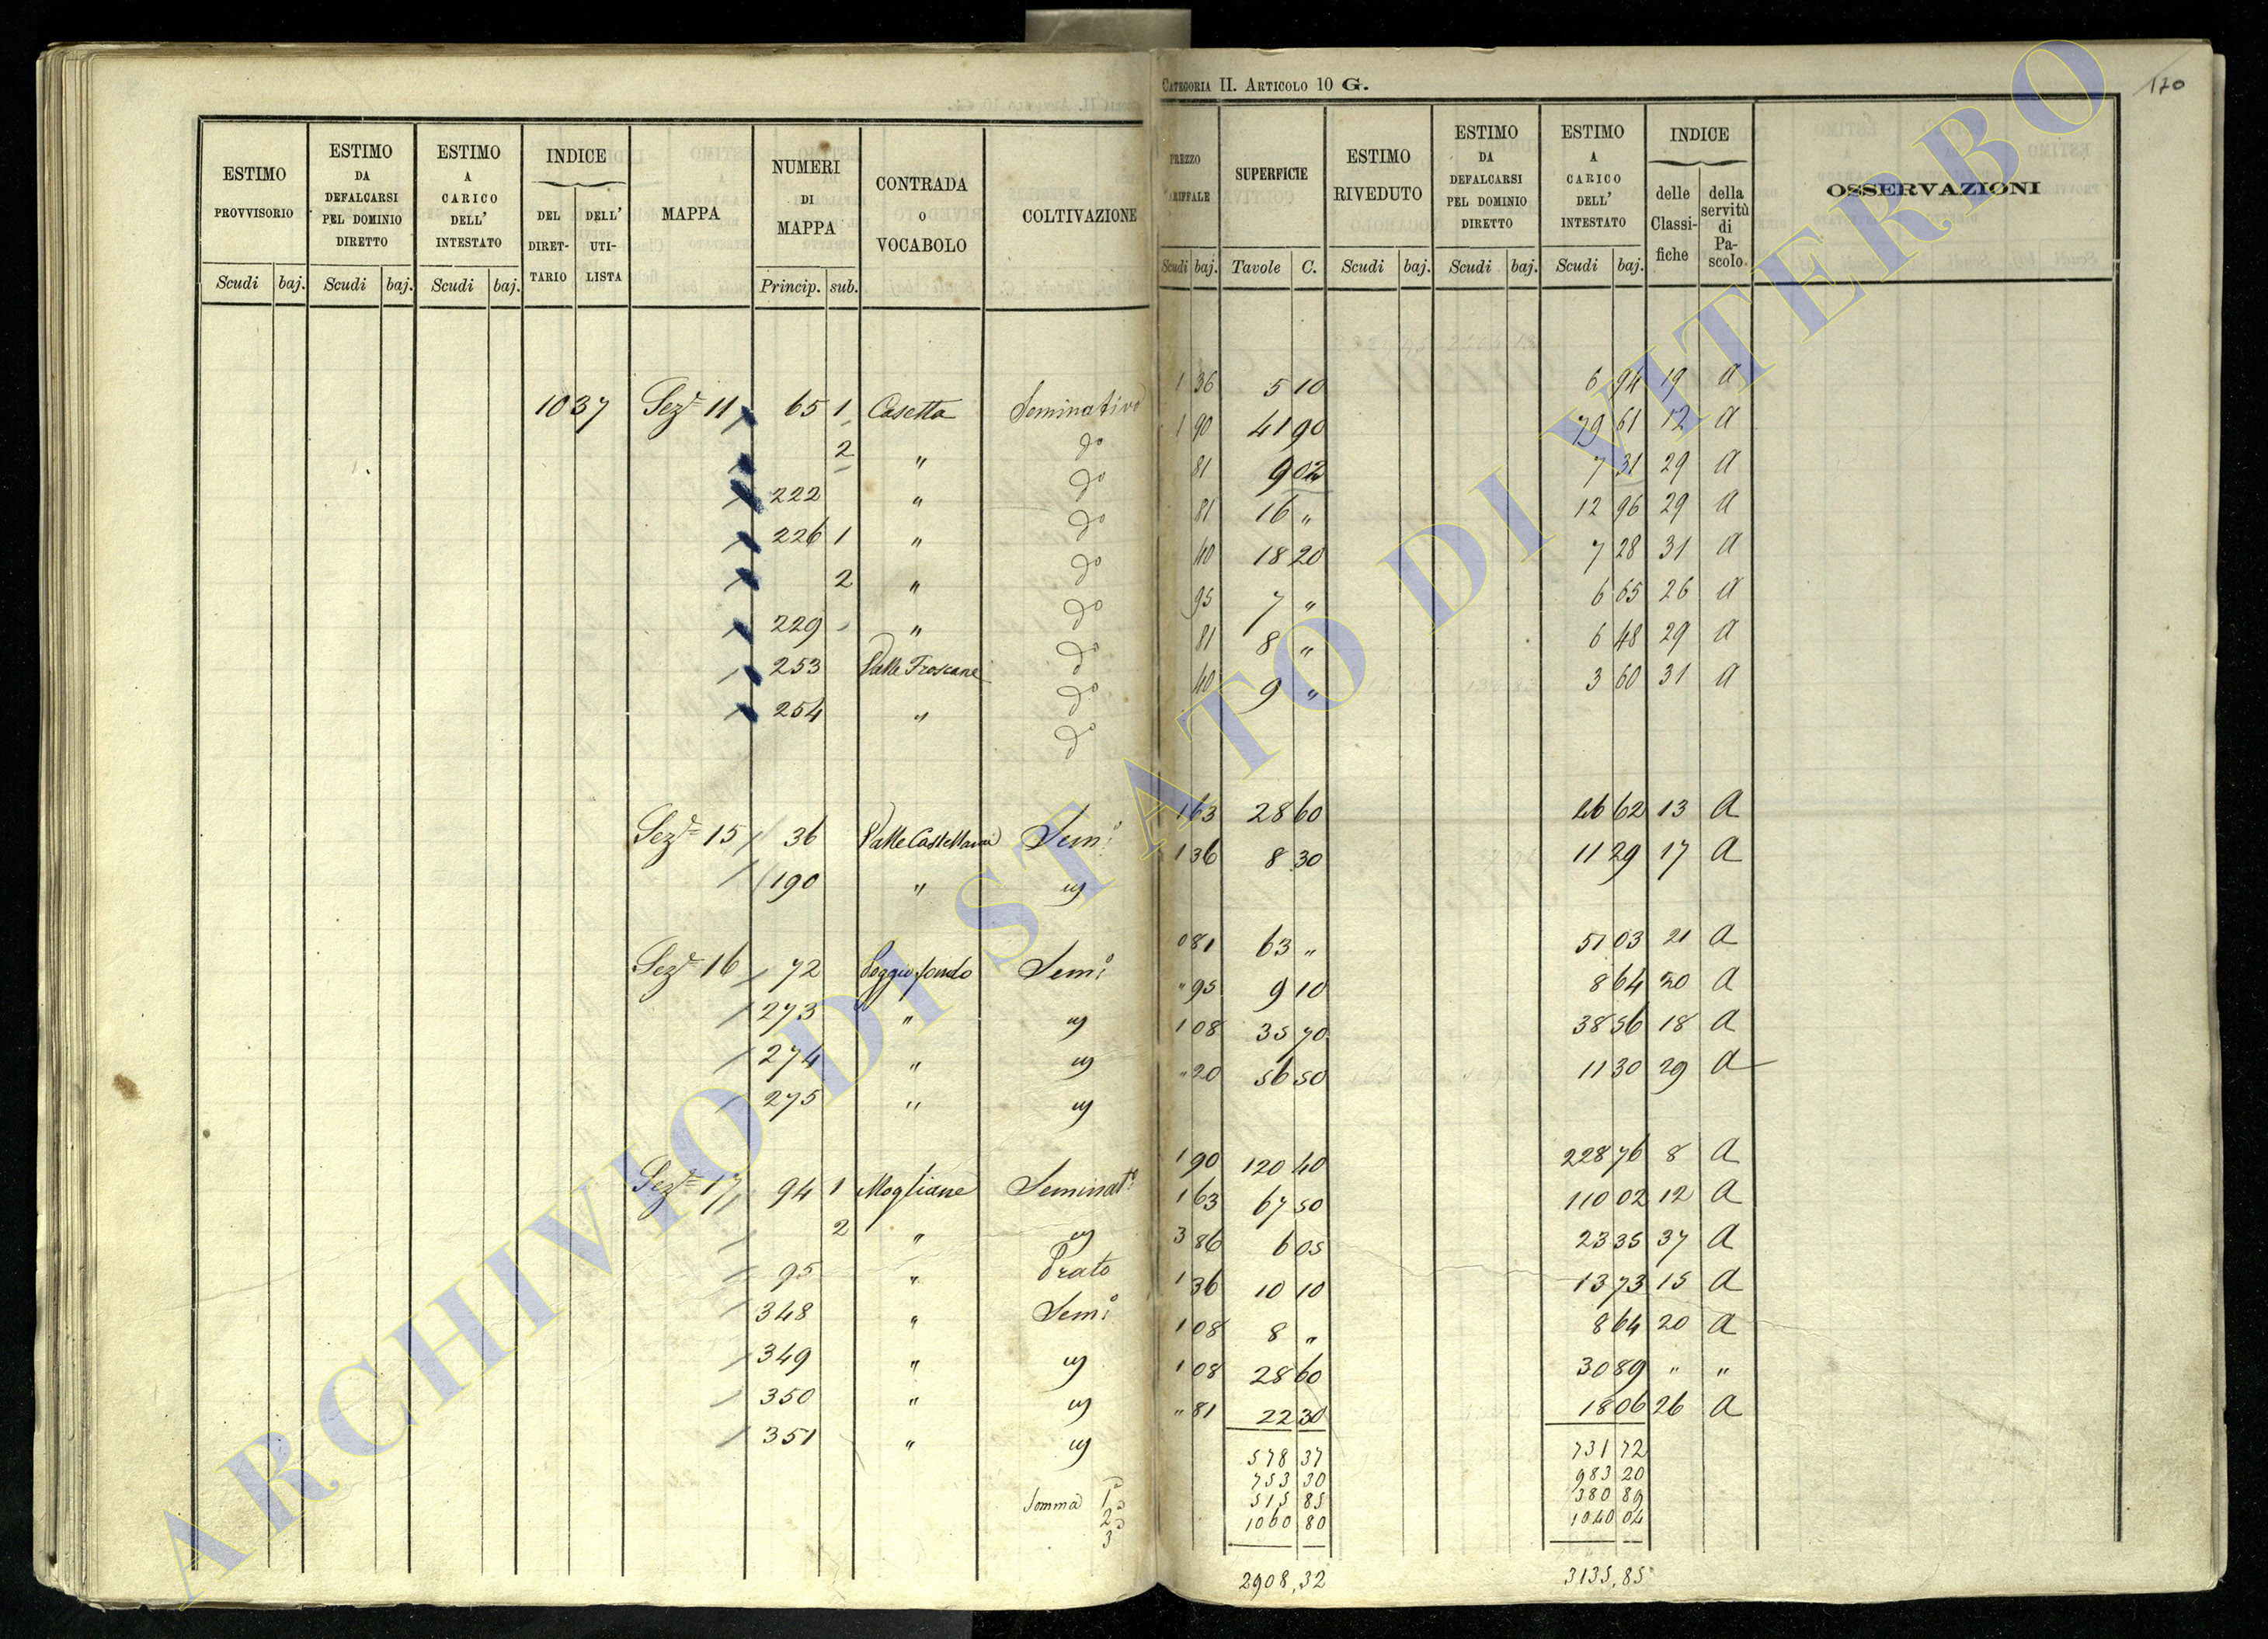 CATEGORIA II. ARTICOLO 10 G.
170
ESTIMO PROVVISORIO
ESTIMO DA DEFALCARSI PEL DOMINIO DIRETTO
ESTIMO A CARICO DELL' INTESTATO
INDICE
DEL DIRET-TARIO
DELL' UTI-LISTA
MAPPA
NUMERI DI MAPPA
CONTRADA O VOCABOLO
COLTIVAZIONE
PREZZO TARIFFALE
SUPERFICIE
ESTIMO RIVEDUTO
ESTIMO DA DEFALCARSI PEL DOMINIO DIRETTO
ESTIMO A CARICO DELL' INTESTATO
INDICE
delle Classi-fiche
della servitù di Pa-scolo
OSSERVAZIONI
Scudi baj. Scudi baj. Scudi baj. Princip. sub. Scudi baj. Tavole C. Scudi baj. Scudi baj. Scudi baj.
1037 Sez.e 11 65 1 Casetta Seminativo 1 36 5 10 6 94 19 A
2 " do 1 90 41 90 79 61 12 A
222 " do 81 9 02 7 31 29 A
226 1 " do 81 16 " 12 96 29 A
2 " do 40 18 20 7 28 31 A
229 " do 95 7 " 6 65 26 A
253 Valle Troscane do 81 8 " 6 48 29 A
254 " do 40 9 " 3 60 31 A
do
Sez.e 15 36 Valle Castellana Sem.o 1 63 28 60 46 62 13 A
190 " " 1 36 8 30 11 29 17 A
Sez.e 16 72 Poggio tondo Sem.o 0 81 63 " 51 03 21 A
273 " " " 95 9 10 8 64 20 A
274 " " 1 08 35 70 38 56 18 A
275 " " " 20 56 50 11 30 29 A
Sez.e 17 94 1 Mogliane Seminat.o 1 90 120 40 228 76 8 A
2 " " 1 63 67 50 110 02 12 A
95 " Prato 3 86 6 05 23 35 37 A
348 " Sem.o 1 36 10 10 13 73 15 A
349 " " 1 08 8 " 8 64 20 A
350 " " 1 08 28 60 30 89 " "
351 " " " 81 22 30 18 06 26 A
578 37 731 72
Somma 1a 753 30 983 20
2a 515 85 380 89
3a 1060 80 1040 04
2908,32 3135,85
ARCHIVIO DI STATO DI VITERBO